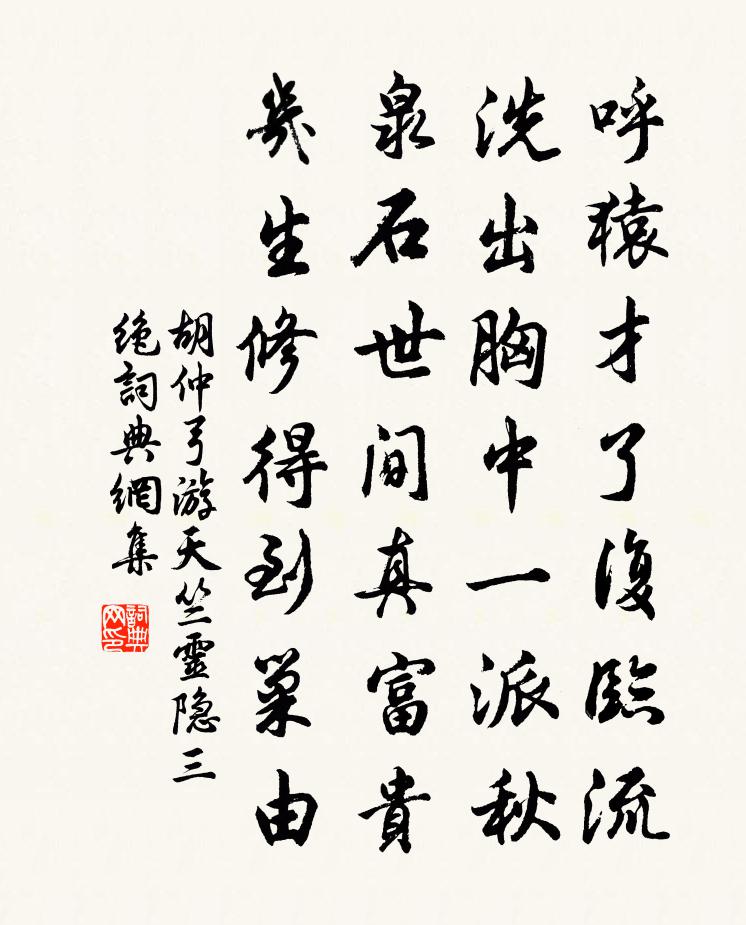 呼猿才了復臨流
洗出胸中一派秋
泉石世間真富貴
幾生修得到巢由
胡仲弓游天竺靈隐三
绝詞典網集
詞典网印